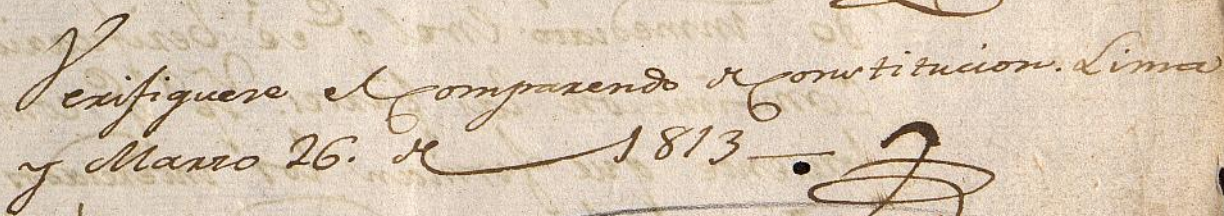 Verifiquese el Comparendo de Constitucion. Lima
y Marzo 26. de 1813